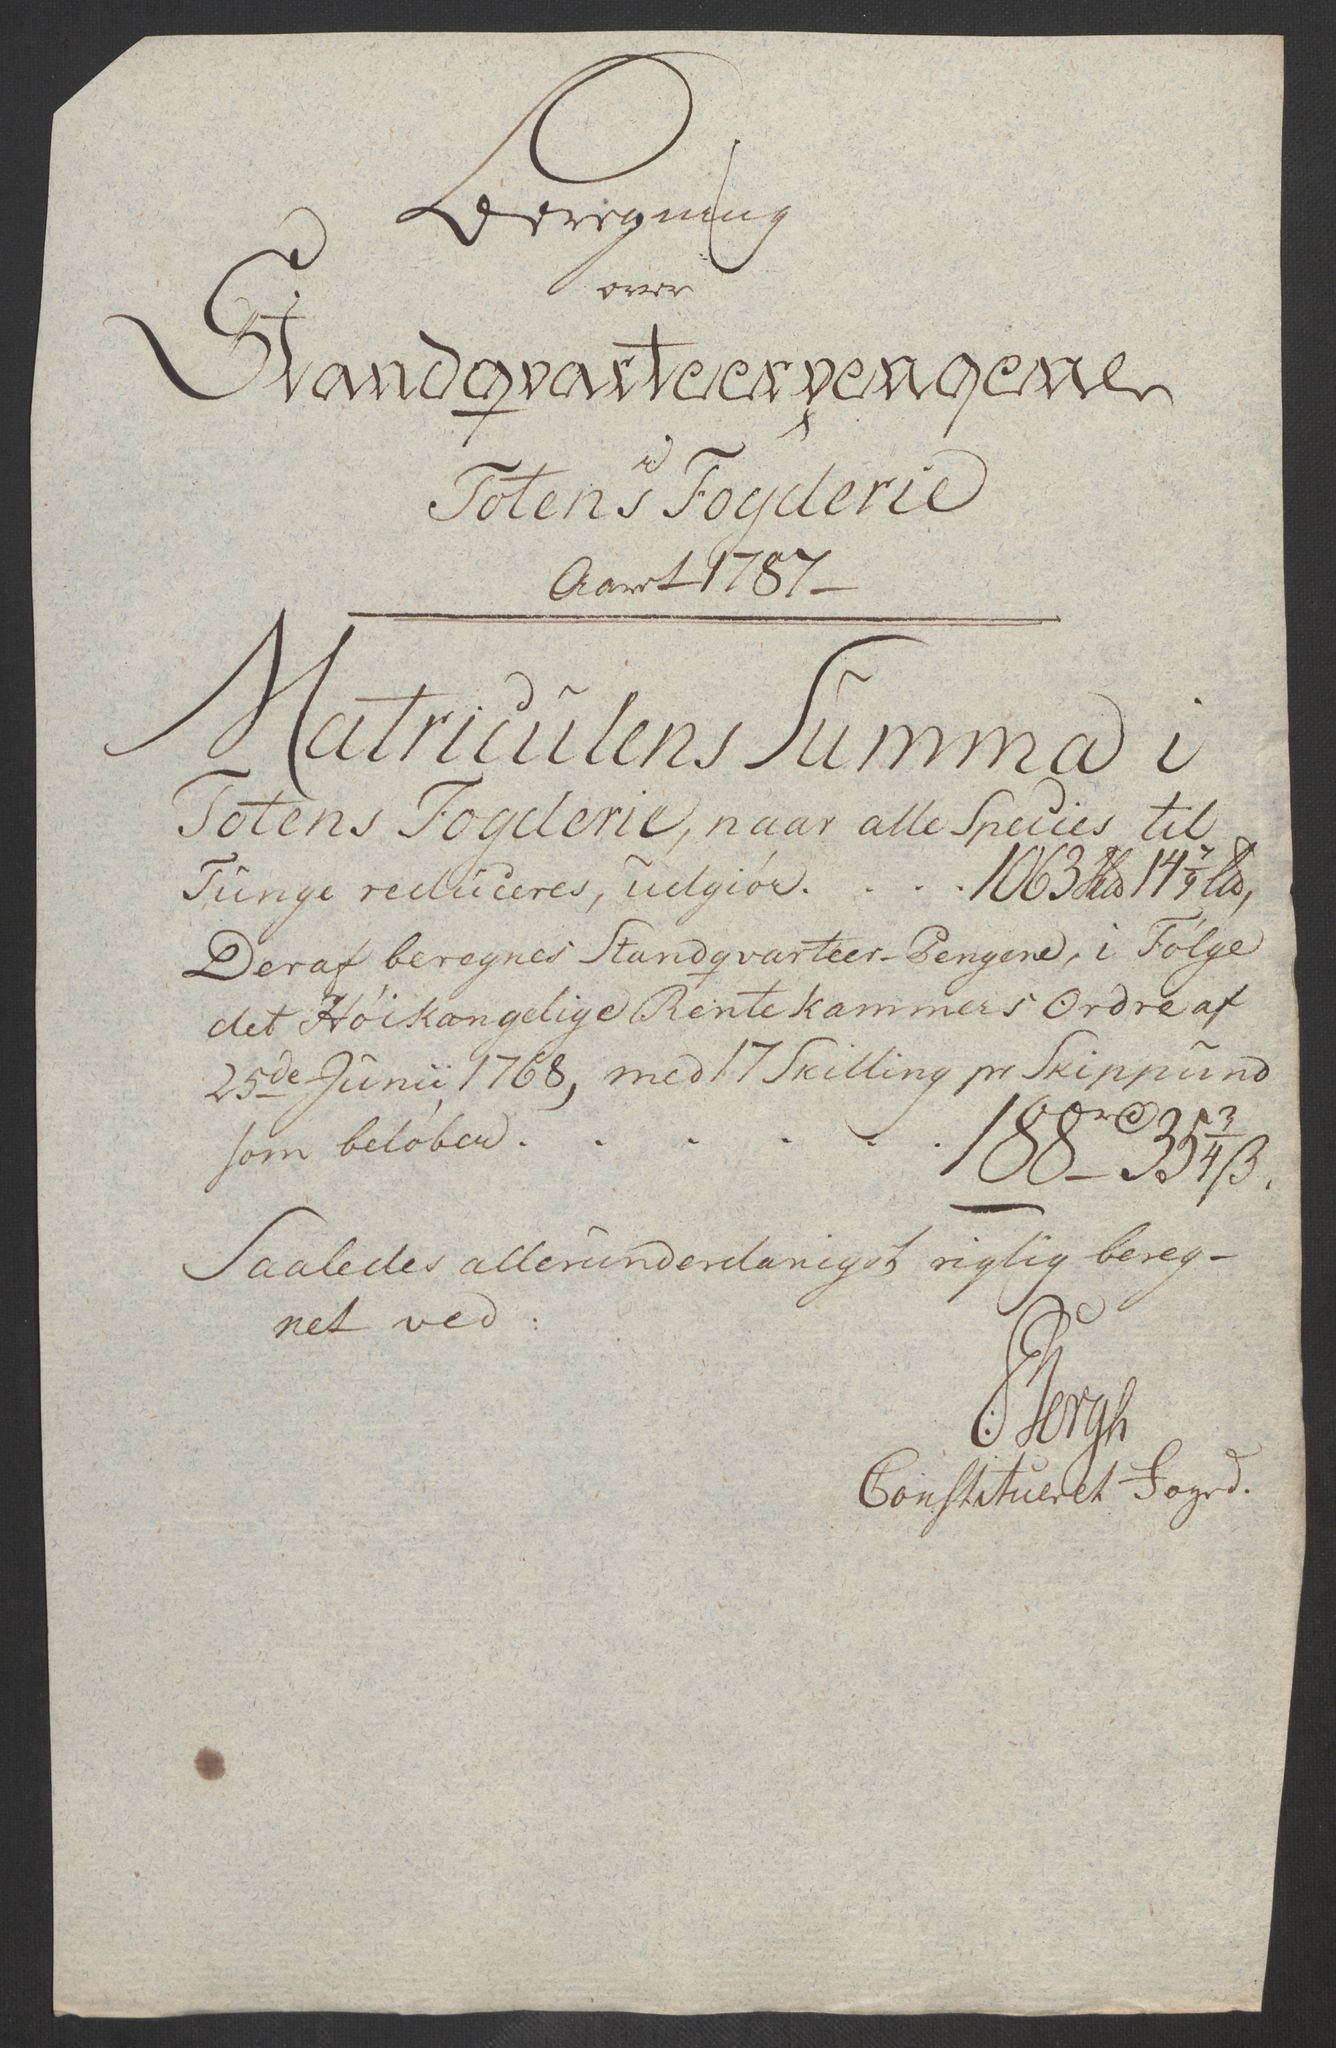 Beregning
over
Standqvarteerpengene
i
Totens Fogderie
Aaret 1787 –
Matriculens Summa i
Totens Fogderie, naar alle Species til
Tunge reduceres, udgiør. . . . 1063 Skd 14 7/9 Ld,
Deraf beregnes Standqvarteer-Pengene, i Følge
det Høikongelige Rentekammers Ordre af
25de Junii 1768, med 17 Skilling pr Skippund
som beløber. . . . . . 188 rd 35 3/4 ß.
Saaledes allerunderdanigst rigtig bereg-
net ved:
Bergh
Constitueret Fogd.